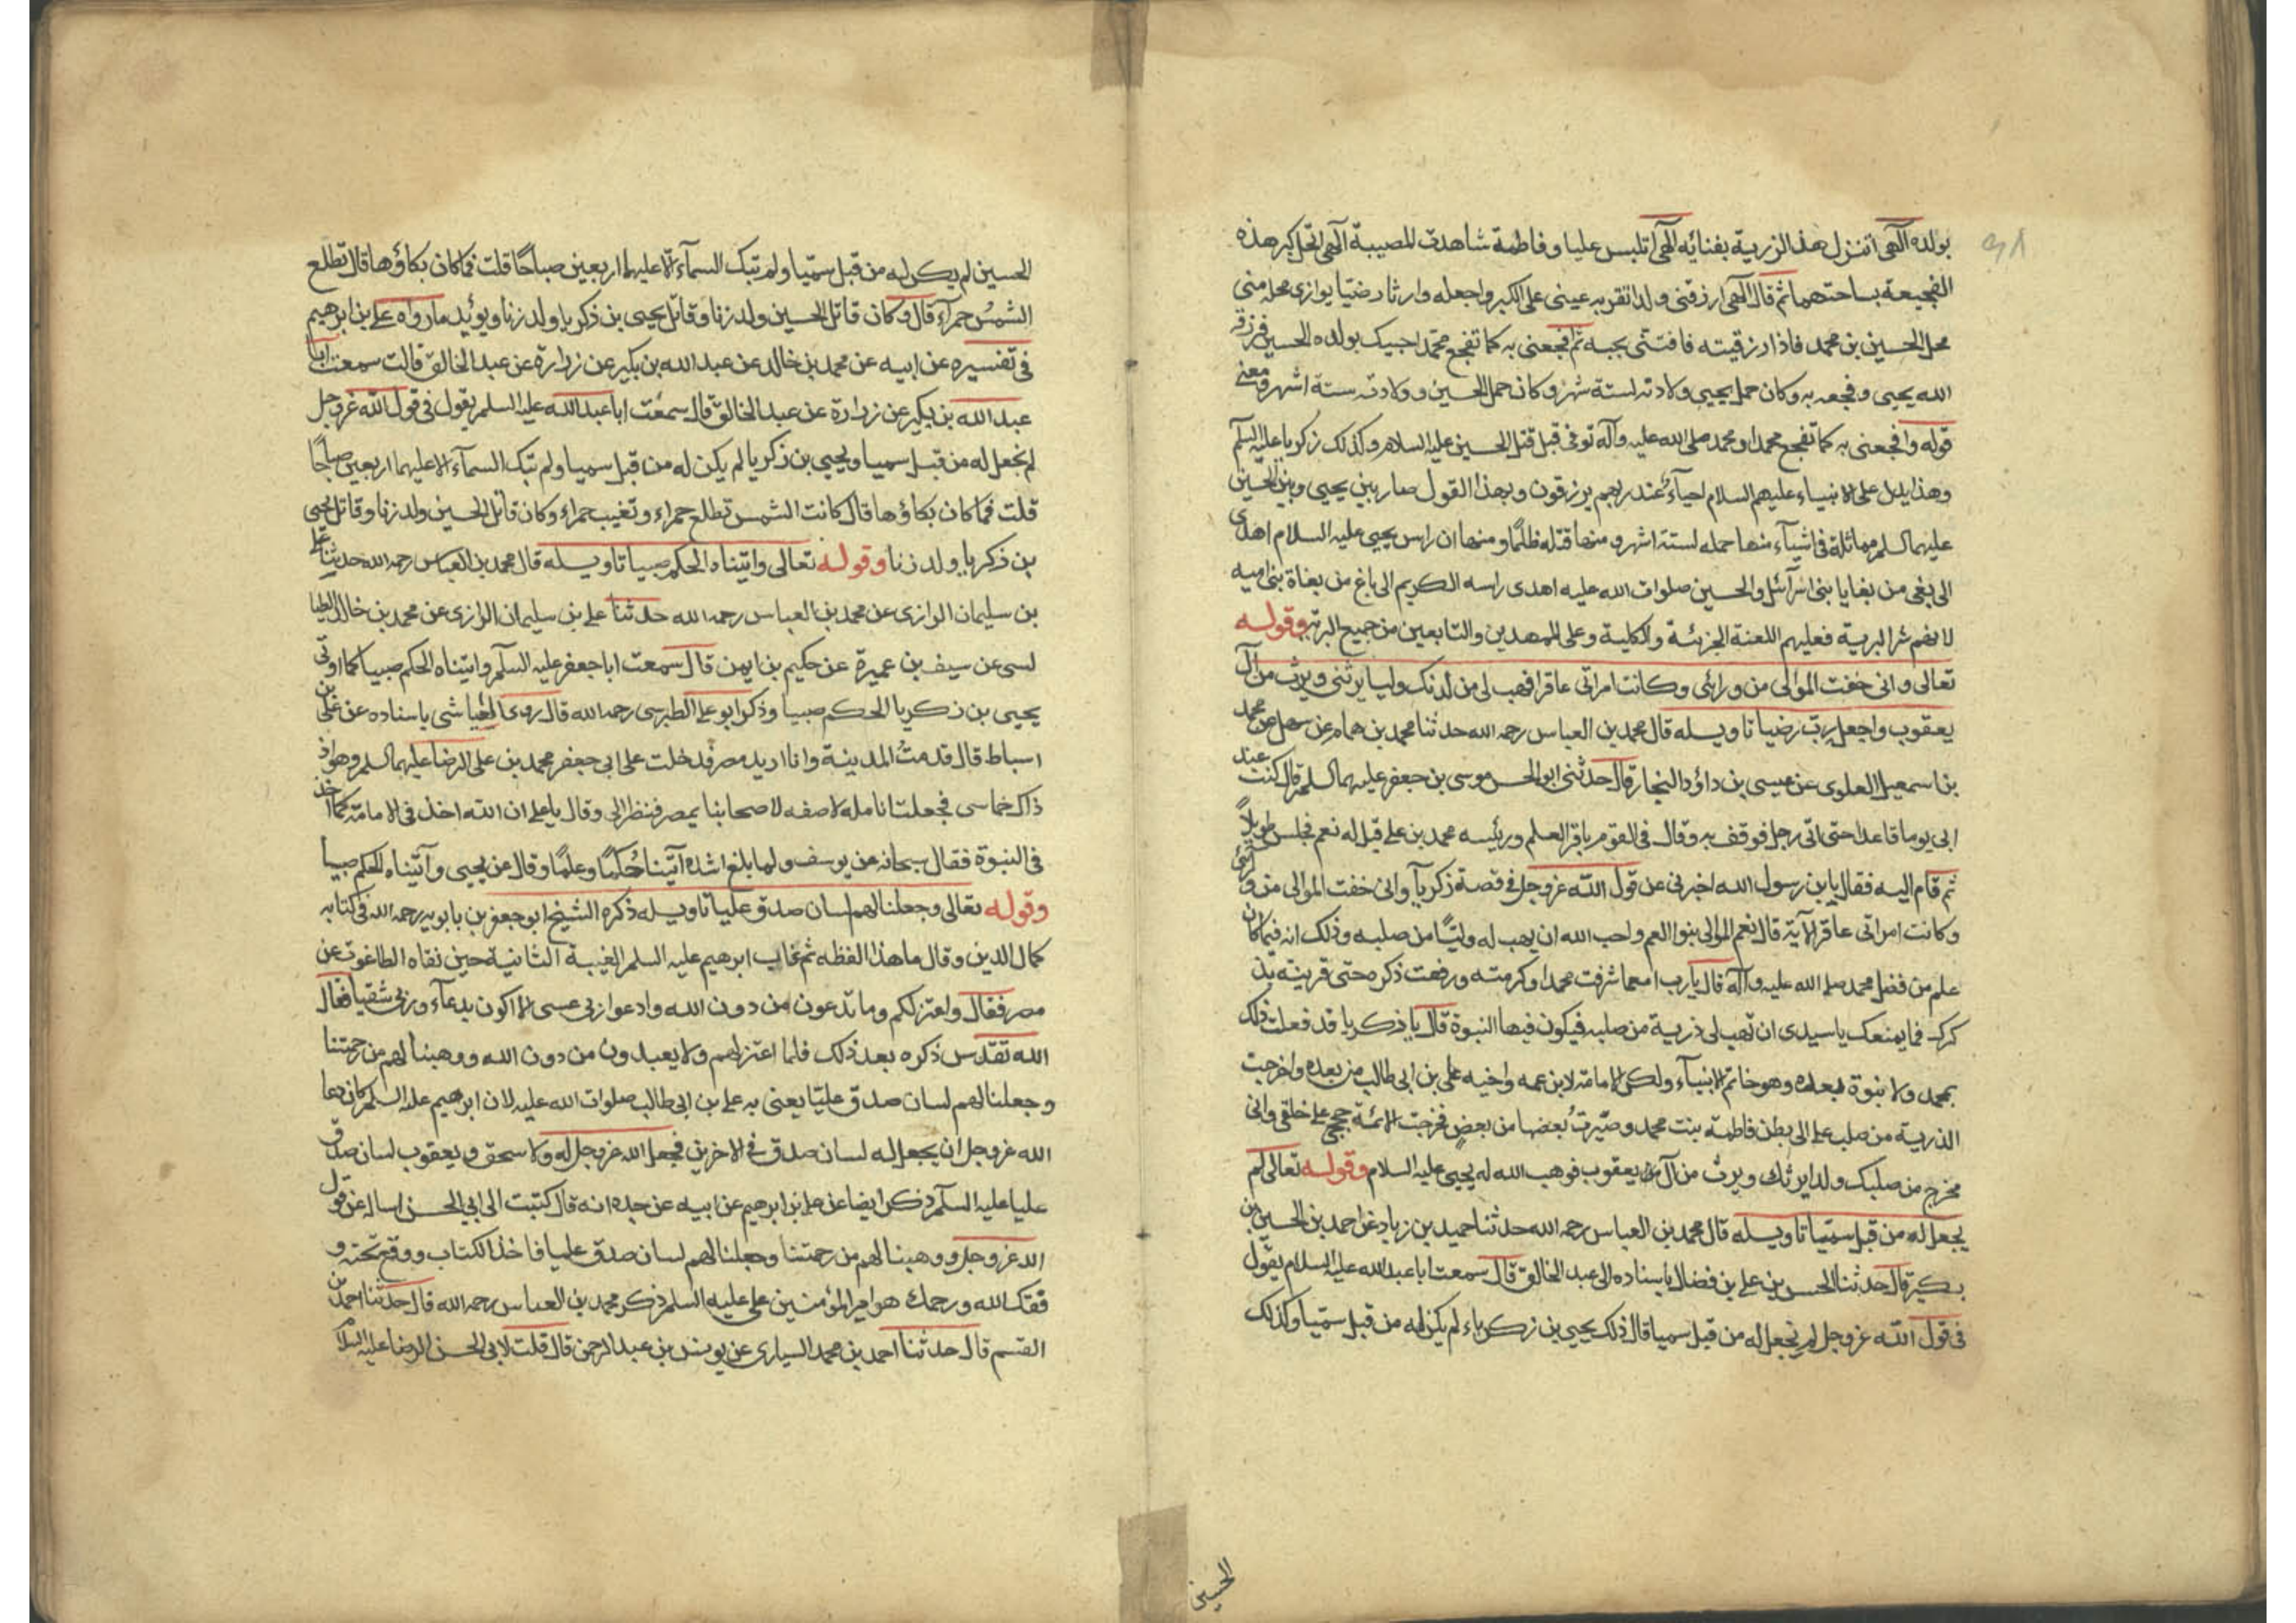 بولده الٓهى اتنزل هذا الزرية بفنائه الٓهى اتلبس عليا وفاطمة شاهدت للمصيبة الٓهى اتحل كبر هذه
الفجيعة بساحتهما ثم قال الٓهى ارزقنى ولدا تقر به عينى على الكبر واجعله وارثا رضيّا يوازى محله منى
محل الحسين بن محمد فاذا رزقيته فافتنّى بحبه ثم افجعنى به كما تفجع محمّد احبيبك بولده الحسين فرزقه
الله يحيى وفجعه به وكان حمل يحيى وولادته لستة شهر وكان حمل الحسين وولادته ستة اشهر ومعنى
قوله وافجعنى به كما تفجع محمدا ومحمد صلى الله عليه وآله توفى قبل قتل الحسين عليه السلام وكذلك زكريا عليه السلم
وهذا يدل على الانبياء عليهم السلام احياءٌ عند ربهم يرزقون وبهذا القول صار بين يحيى وبين الحسين
عليهما السلم مماثلة فى اشيآء منها حمله لستة اشهر ومنها قتله ظلمًا ومنها ان راس يحيى عليه السلام اهدى
الى بغى من بغايا بنى اسرآئيل والحسين صلوات الله عليه اهدى راسه الكريم الى باغ من بغاة بنى اميه
لانهم شر البرية فعليهم اللعنة الجزئية والكلية وعلى الممهدين والتابعين من جميع البرية وقوله
تعالى وانى خفت الموالى من ورائى وكانت امراتى عاقرا فهب لى من لدنك وليا يرثنى ويرث من آل
يعقوب واجعله رب رضيا تاويله قال محمد بن العباس رحمه الله حدثنا محمد بن همام عن سهل عن محمد
بن اسمعيل العلوى عن عيسى بن داؤد النجار قال حدثنى ابو الحسن موسى بن جعفر عليهما السلم قال كنت عند
ابى يوما قاعدا حتى اتى رجل فوقف به وقال فى القوم باقر العلم ورئيسه محمد بن على قيل له نعم فجلس طويلاً
ثم قام اليه فقال يا بن رسول الله اخبرنى عن قول اللّه عزوجل فى قصة زكريآ وانى خفت الموالى من ورائى
وكانت امراتى عاقر الآية قال نعم الموالى بنوا العم واحب الله ان يهب له وليًّا من صلبه وذلك انه فيما كان
علم من فضل محمد صلى الله عليه وآله قال يارب امعما شرفت محمدا وكرمته ورفعت ذكره حتى قرينته بذ
كرك فما يمنعك يا سيدى ان تهب لى ذرية من صلبه فيكون فيها النبوة قال يا زكريا قد فعلت ذلك
بمحمد ولا نبوة بعده وهو خاتم الانبيآء ولكن الامامة لابن عمه واخيه على بن ابى طالب من بعده واخرجت
الذرية من صلب على الى بطن فاطمة بنت محمد وصّيرتُ بعضها من بعضٍ فخرجت الائمة حججى على خلقى وانى
مخرج من صلبك ولدا يرثك ويرث من آل يعقوب فوهب الله له يحيى عليه السلام وقوله تعالى لم
يجعل له من قبل سميّا تاويله قال محمد بن العباس رحمه الله حدثنا حميد بن زياد عن احمد بن الحسين بن
بكير قال حدثنا الحسن بن على بن فضال باسناده الى عبد الخالق قال سمعت ابا عبد الله عليه السلام يقول
فى قول اللّه عزوجل لم نجعل له من قبل سميا قال ذلك يحيى بن زكرياء لم يكن له من قبل سميّا وكذلك
الحسين
الحسين لم يكن له من قبل سميّا ولم تبك السمآء الّا عليهما اربعين صباحًا قلت فما كان بكاؤها قال تطلع
الشمسُ حمرآء قال وكان قاتل الحسين ولد زنا وقاتل يحيى بن زكريا ولد زنا ويؤيد مارواه على بن ابرهيم
فى تفسيره عن ابيه عن محمد بن خالد عن عبد الله بن بكير عن زرارة عن عبد الخالق قالت سمعت ابا
عبد الله بن بكير عن زرارة عن عبد الخالق قال سمعت ابا عبد الله عليه السلم يقول فى قول اللّه عزوجل
لم نجعل له من قبل سميا ويحيى بن زكريا لم يكن له من قبل سميا ولم تبك السمآء الا عليهما اربعين صباحًا
قلت فما كان بكاؤها قال كانت الشمس تطلع حمراء وتغيب حمراء وكان قاتل الحسين ولد زنا وقاتل يحيى
بن زكريا ولد زنا وقوله تعالى واتيناه الحكم صبيا تاويله قال محمد بن العباس رحمه الله حدثنا على
بن سليمان الرازى عن محمد بن العباس رحمه الله حدثنا على بن سليمان الرازى عن محمد بن خالد الطيا
لسى عن سيف بن عميرة عن حكيم بن ايمن قال سمعت ابا جعفر عليه السلم واتيناه الحكم صبيا كما اوتى
يحيى بن زكريا الحكم صبيا وذكر ابو على الطبرسى رحمه الله قال روى العياشى باسناده عن على بن
اسباط قال قدمتُ المدينة وانا اريد مصر فدخلت على ابى جعفر محمد بن على الرضا عليهما السلم وهو اذ
ذاك خماسى فجعلت اتامله لاصفه لاصحابنا بمصر فنظر الى وقال يا على ان الله اخذ فى الامامة كما اخذ
فى النبوة فقال سبحانه عن يوسف ولما بلغ اشده آتيناه حُكمًا وعلمًا وقال عن يحيى وآتيناه الحكم صبيا
وقوله تعالى وجعلنا لهم لسان صدق عليا تاويله ذكره الشيخ ابو جعفر بن بابويه رحمه الله فى كتابه
كمال الدين وقال ما هذا الفظه ثم غاب ابرهيم عليه السلم الغيبة الثانية حين نفاه الطاغوت عن
مصر فقال واعتزلكم وما تدعون من دون الله وادعوا ربى عسى الا اكون بدعآء ربى شقيا فقال
الله تقدّس ذكره بعد ذلك فلما اعتزلهم ولا يعبدون من دون الله ووهبنا لهم من رحمتنا
وجعلنا لهم لسان صدق عليّا يعنى به على بن ابى طالب صلوات الله عليه لان ابرهيم عليه السلم كان دعا
الله عزوجل ان يجعل له لسان صدق فى الاخرين فجعل الله عزوجل له ولاسحق ويعقوب لسان صدق
عليا عليه السلم ذكر ايضا عن على بن ابرهيم عن ابيه عن جده انه قال كتبت الى ابى الحسن اساله عن قول
الله عزوجل ووهبنا لهم من رحمتنا وجعلنا لهم لسان صدق عليا فاخذ الكتاب ووقع تحته و
فقك الله ورحمك هو امير المؤمنين على عليه السلم ذكر محمد بن العباس رحمه الله قال حدثنا احمد بن
القسم قال حدثنا احمد بن محمد السيارى عن يونس بن عبد الرحمن قال قلت لابى الحسن الرضا عليه السلام